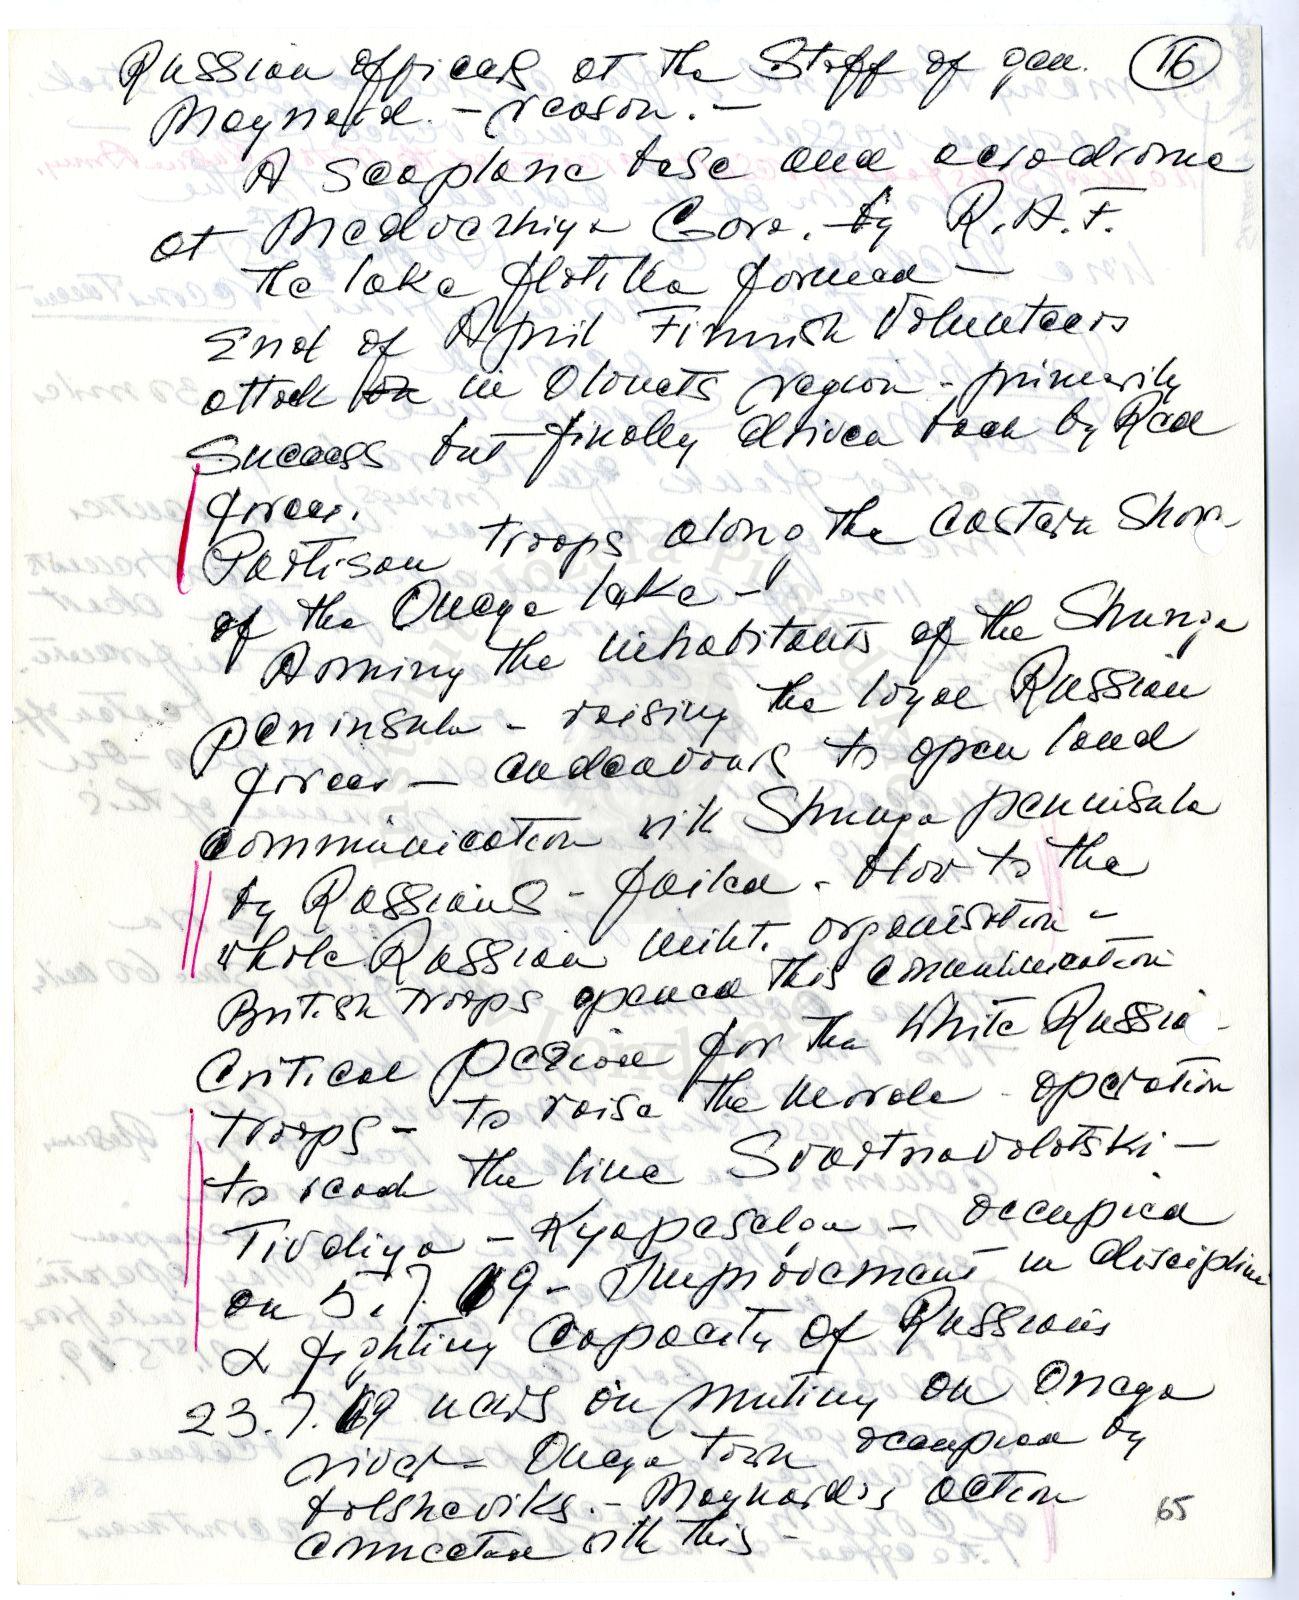 Russian officers at the Staff of gen. (16)
Maynard. - reason. -
A seaplane base and aerodrome
at Medvezhiya Gora. by R.A.F.
the lake flotilla formed -
End of April Finnish Volunteers
attack in in Olonets region - primarily
success but finally driven back by Red
forces.
Partisan troops along the eastern Shore
of the Onega lake -
Arming the inhabitants of the Shunga
peninsula - raising the loyal Russian
forces - endeavours to open land
communication with Shunga peninsula
by Russians - failed. blow to the
whole Russian milit. organisation -
British troops opened this communication
Critical Period for the White Russia-
troops - to raise the morale - operation
to reach the line Svartnavolotski -
Tivdiya - Kyapeselga - occupied
on 5.7.19 - Improvement in discipline
& fighting capacity of Russians
23.7.19 news on mutiny on Onega
river - Onega town occupied by
bolsheviks. - Maynard's action
connected with this -
65